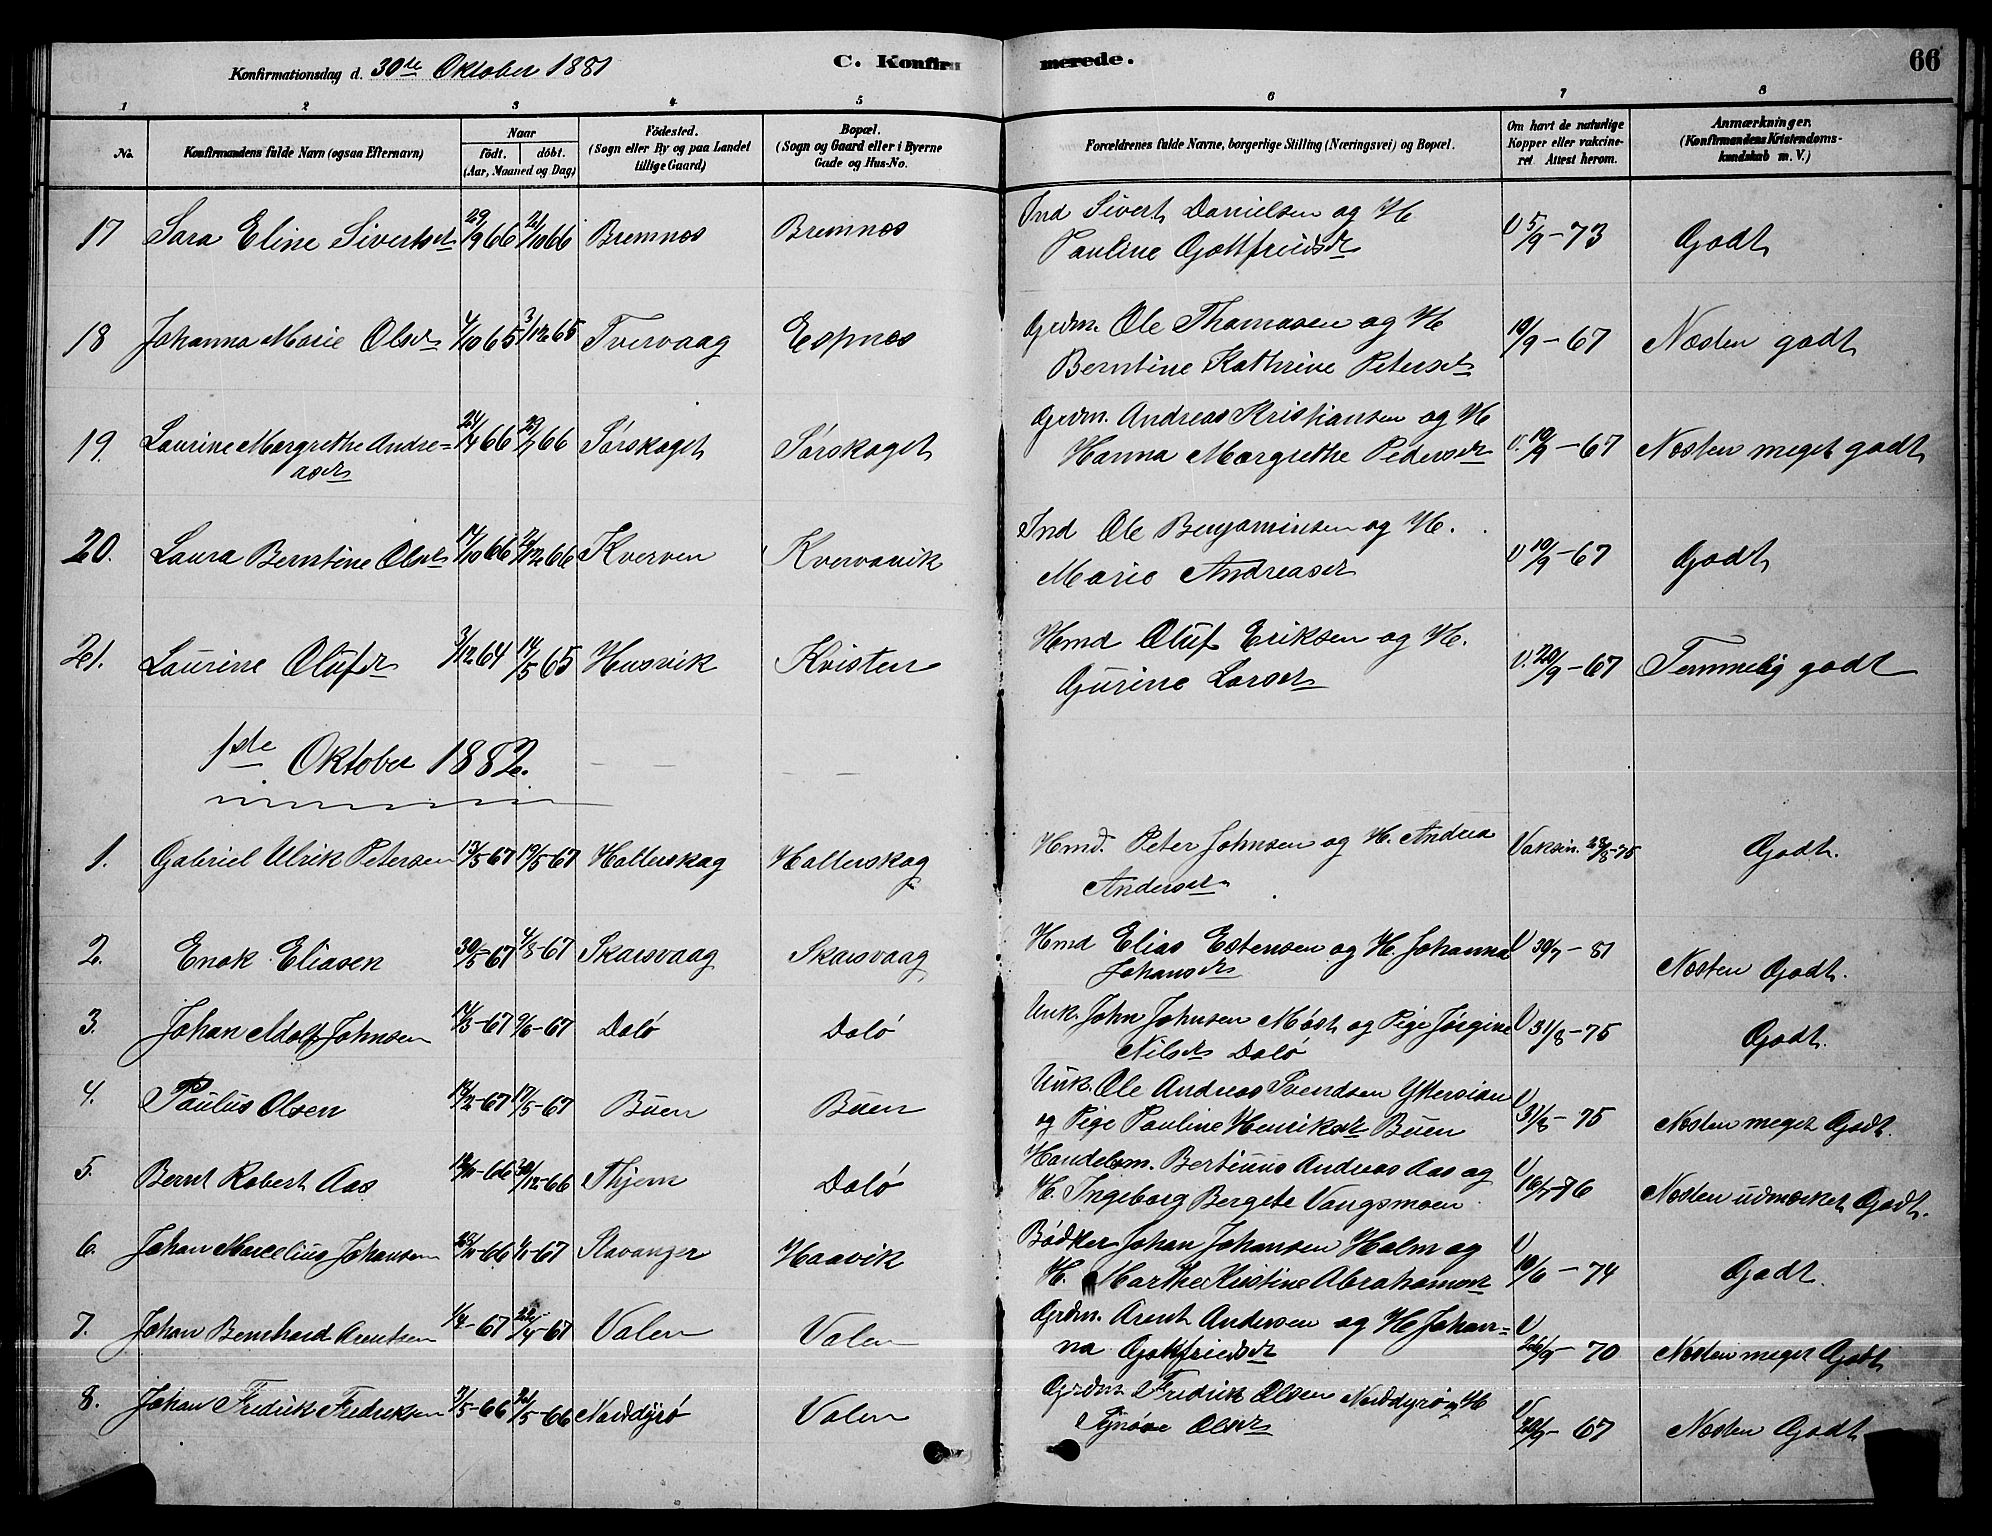 Konfirmationsdag d. 30te Oktober 1881
C. Konfirmerede.
66
1 2 3 4 5 6 7 8
No.
Konfirmandens fulde Navn (ogsaa Efternavn)
Naar
födt. döbt.
(Aar, Maaned og Dag)
Födested.
(Sogn eller By og paa Landet
tillige Gaard)
Bopæl.
(Sogn og Gaard eller i Byerne
Gade og Hus-No.
Forældrenes fulde Navne, borgerlige Stilling (Næringsvei) og Bopæl.
Om havt de naturlige
Kopper eller vakcine-
ret. Attest herom.
Anmærkninger.
(Konfirmandens Kristendoms-
kundskab m. V.)
17 Sara Eline Sivertsdr 29/9 66 21/10 66 Bremnes Bremnes Ind Sivert Danielsen og H. V 5/9-73 Godt
Pauline Gottfriedsdr
18 Johanna Marie Olsdr 4/10 65 3/12 65 Tvervaag Espnes Grdm. Ole Thomasen og H 19/9-67 Næsten godt
Berntine Kathrine Petersdr
19. Laurine Margrethe Andre- 24/4 66 66 Sørskaget Sørskaget Grdm. Andreas Kristiansen og H V. 19/9-67 Næsten meget godt
asdr Hanna Margrethe Pedersdr
20. Laura Berntine Olsdr 17/10 66 66 Kverven Kvervavik Ind Ole Benjaminsen og H. V 19/9-67 Godt
Marie Andreasdr
21. Laurine Olufsdr 3/12 64 14/5 65 Husvik Kvisten Hmd Oluf Eriksen og H. V. 20/9-67 Temmelig godt
Gurine Larsdr
1ste Oktober 1882.
1. Gabriel Ulrik Petersen 12/5-67 19/5-67 Hallerskag Hallerskag Hmd. Peter Johnsen og H. Andrea Vaksin. 23/8-75 Godt.
Andersdr
2. Enok Eliasen 30/5-67 4/8-67 Skarsvaag Skarsvaag Hmd Elias Estensen og H. Johanna V 30/7-81 Næsten Godt.
Johansdr
3. Johan Adolf Johnsen 17/3-67 9/6-67 Dolø Dolø Unk. John Johnsen Møst og Pige Jørgine V 31/8-75 Godt.
Nilsdr Dolø
4. Paulus Olsen 14/2-67 17/5-67 Buen Buen Unk. Ole Andreas Svendsen Yttersian V
og Pige Pauline Henriksdr Buen 31/8-75 Næsten meget Godt.
5. Bernt Robert Aas 12/11-66 30/12-66 Thjem Dolø Handelsm. Bertinus Andreas Aas og V
H. Ingeborg Bergete Vangsmoen 16/7-76 Næsten udmærket Godt.
6. Johan Marcelius Johansen 66 67 Stavanger Haavik Bødker Johan Johansen Holm og V
H. Marthe Kristine Abrahamsdr 10/6-74 Godt.
7. Johan Bernhard Arntsen 1/4-67 22/4-67 Valen Valen Grdm. Arent Andersen og H Johan- V
na Gottfriedsdr 26/9-70 Næsten meget Godt
8. Johan Fredrik Fredriksen 2/5-66 21/5-66 Norddyrø Valen Grdm Fredrik Olsen Norddyrø og H V
Synøve Olsdr 20/9-67 Næsten Godt